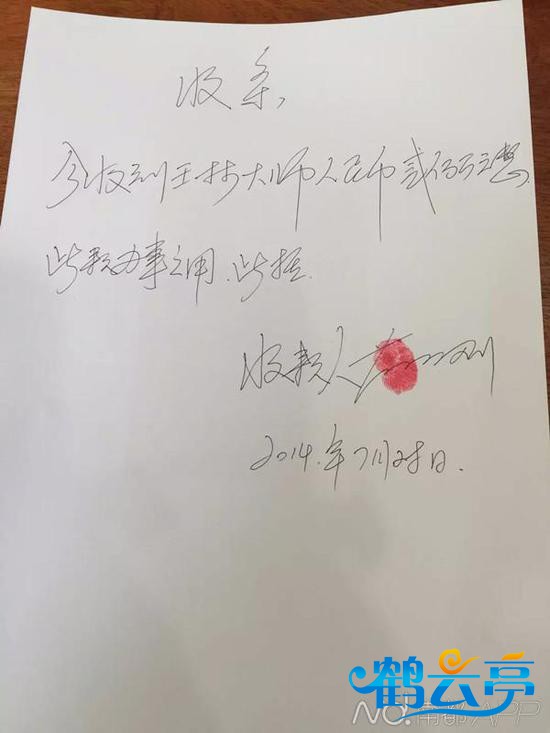 收条,
今收到王林大师人民币贰佰万元整.
此款办事之用.此据.
收款人
2014.年7月28日.
鹤云亭
NO. 南都APP